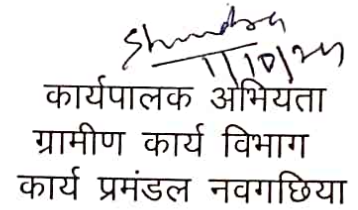 1/10/24
कार्यपालक अभियता
ग्रामीण कार्य विभाग
कार्य प्रमंडल नवगछिया